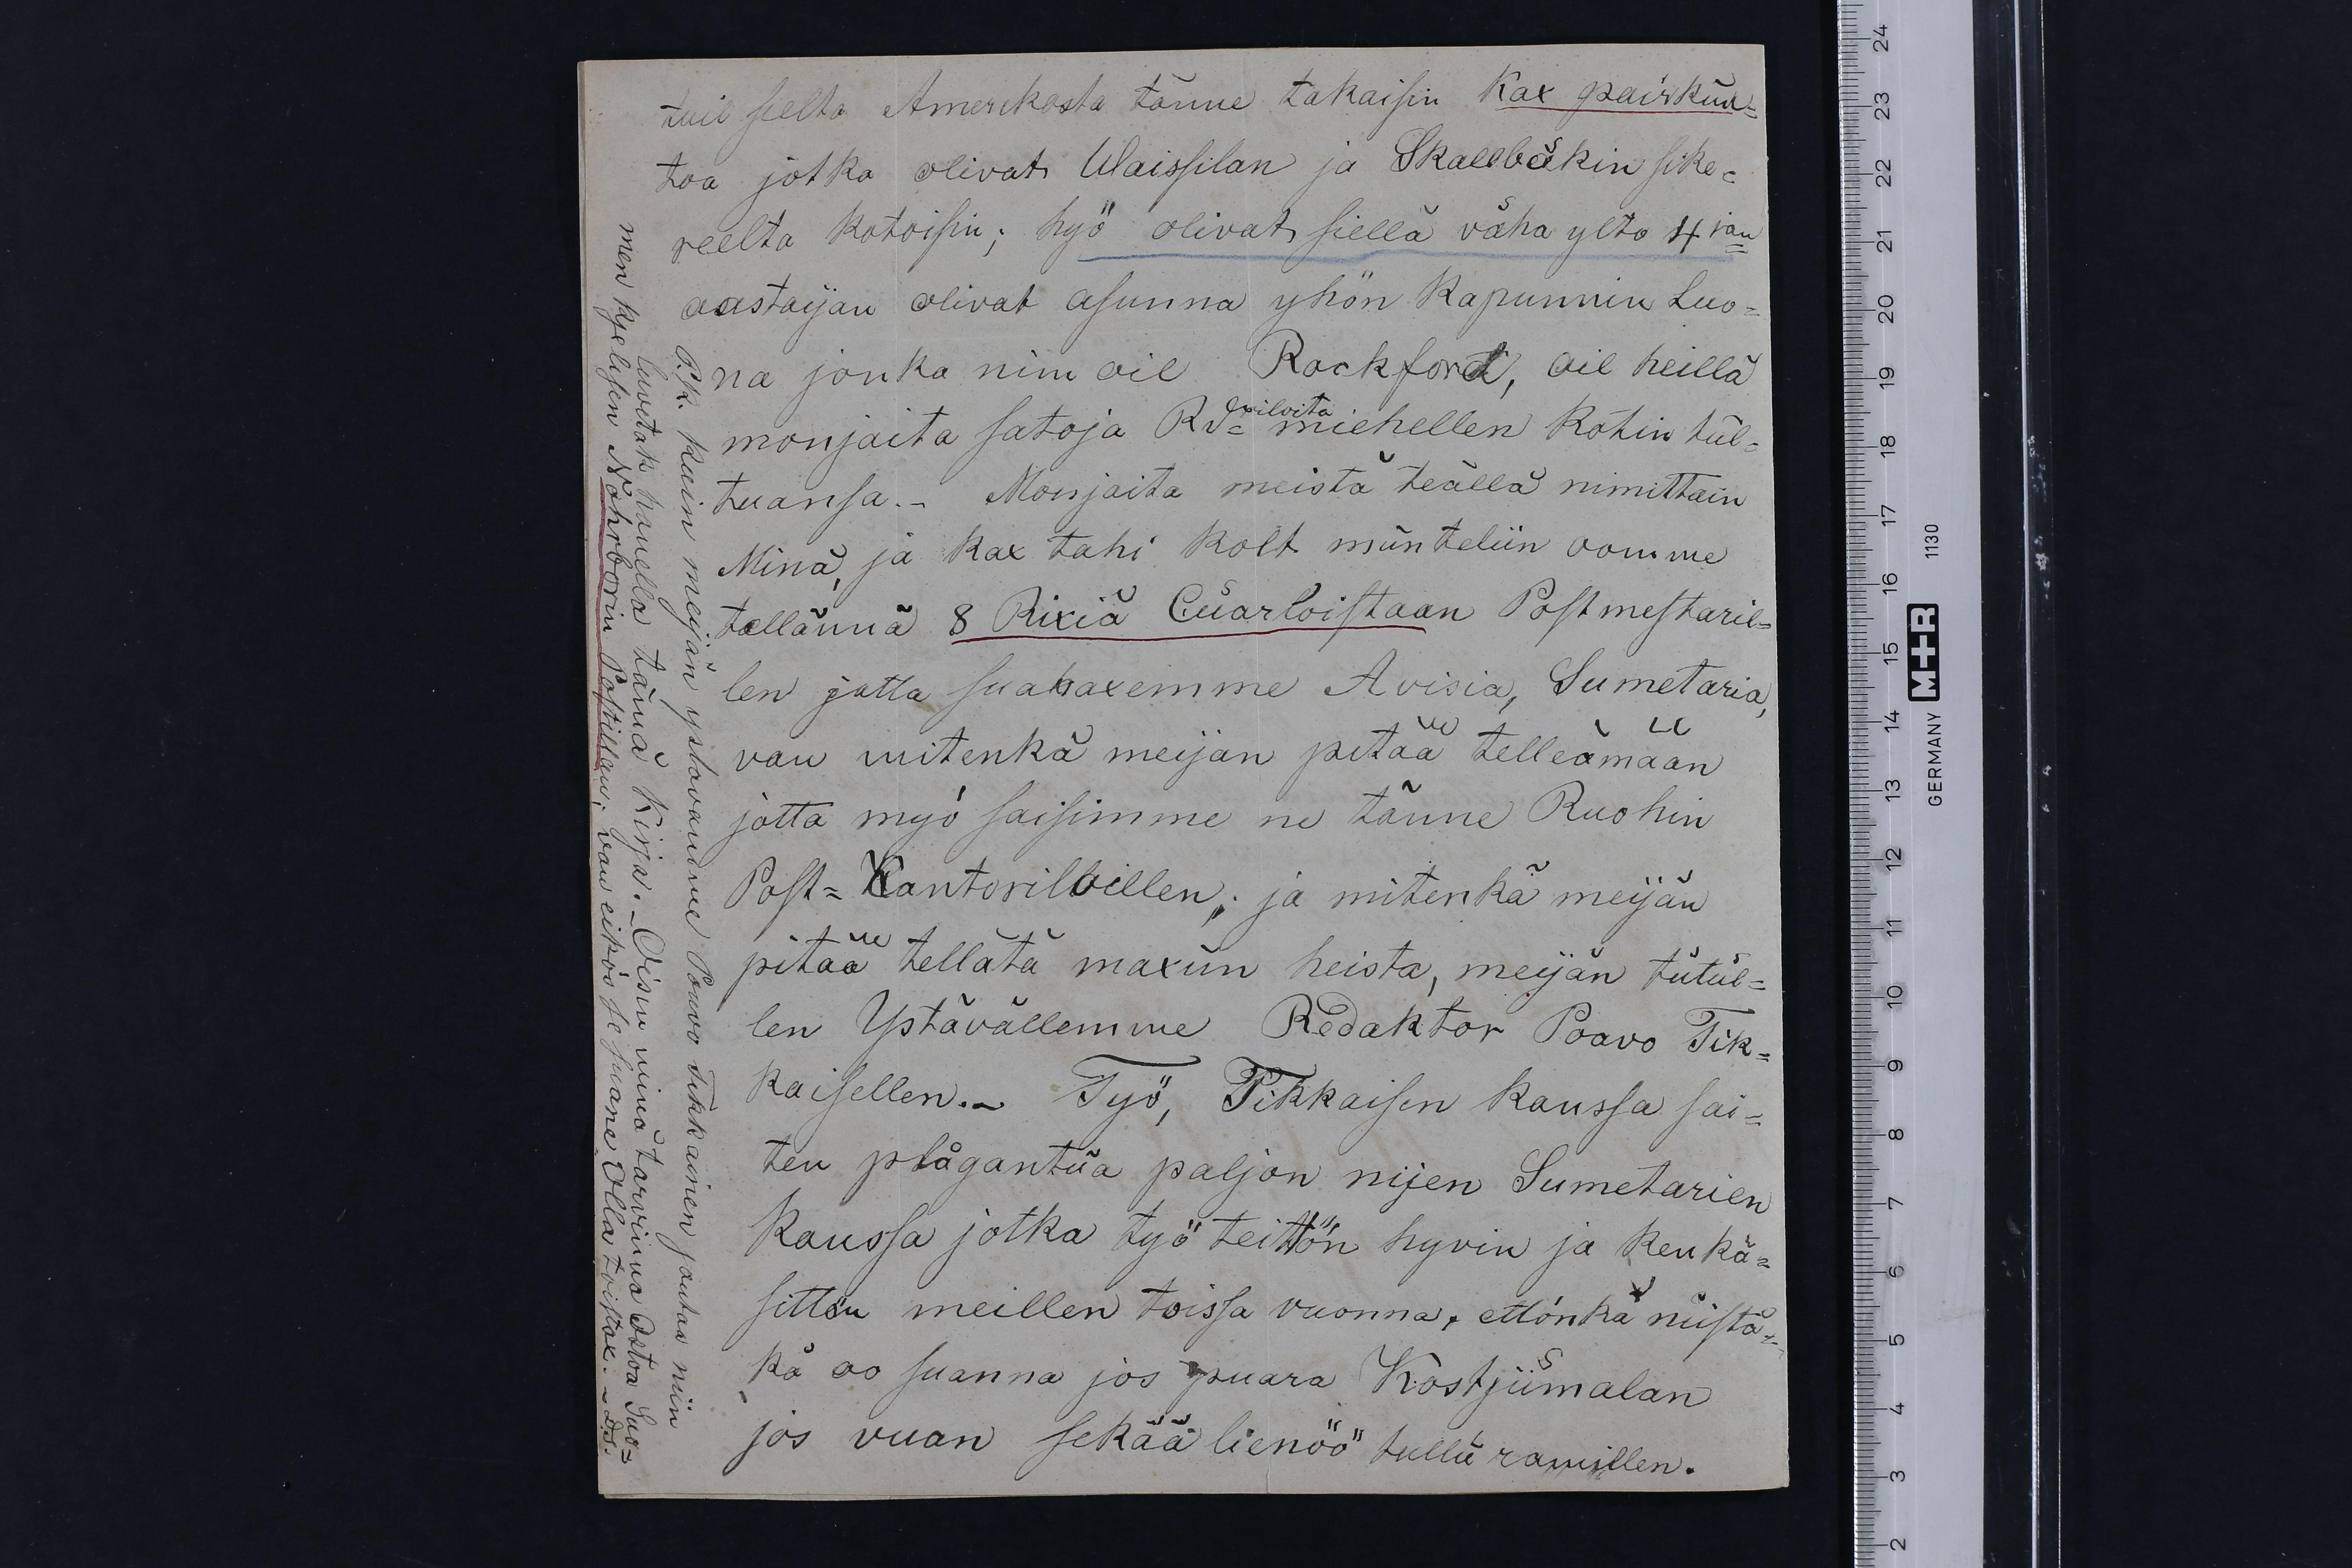 tuil sielta Amerikasta tänne takaisin Kax pairkun-
toa jotka olivat Ulaissilan ja Skallbäkin sike=
reelta kotoisin; hyö olivat siellä väha ylto 4 ian=
aastaijan olivat asunna yhön kapunnin Luo=
na jonka nim oil Rockford, oil heillä
monjaita satoja Rd= riloita miehellen kotin tül=
tuansa.- Monjaita meistä teällä nimittäin
Minä, ja kax tahi kolt münteliin oomme
tellännä 8 Rixiä Cüarloistaan Postmestaril=
len jotta suahaxemme Avisia, Sumetaria,
van mitenkä meijän pitää telleämään
jotta myö saisimme ne tänne Ruohin
Post=Kantorilloillen; ja mitenkä meijän
pitää tellätä maxün heista, meijän tütül=
len Ystävällemme Redaktor Poavo Tik=
kaisellen.- Työ, Tikkaisen kanssa sai=
ten plågantüa paljon nijen Sumetarien
kanssa jotka työ teittön hyvin ja kenkä=
sittön meillen toissa vuonna, ettönkä niistä=
kä oo suanna jos puara Kostjümalan
jos vuan sekää lienöö tullü ramillen.
P.K. kuin meijän ystavamme Poavo Tikkainen joutaa niin
luvotak hänellä tämä Kirja.- Oisin minä tarvinna Ostoa Suo=
men kjelisen Nohrborin Postillan; van eiköö se suane Olla toistax.- D.S.